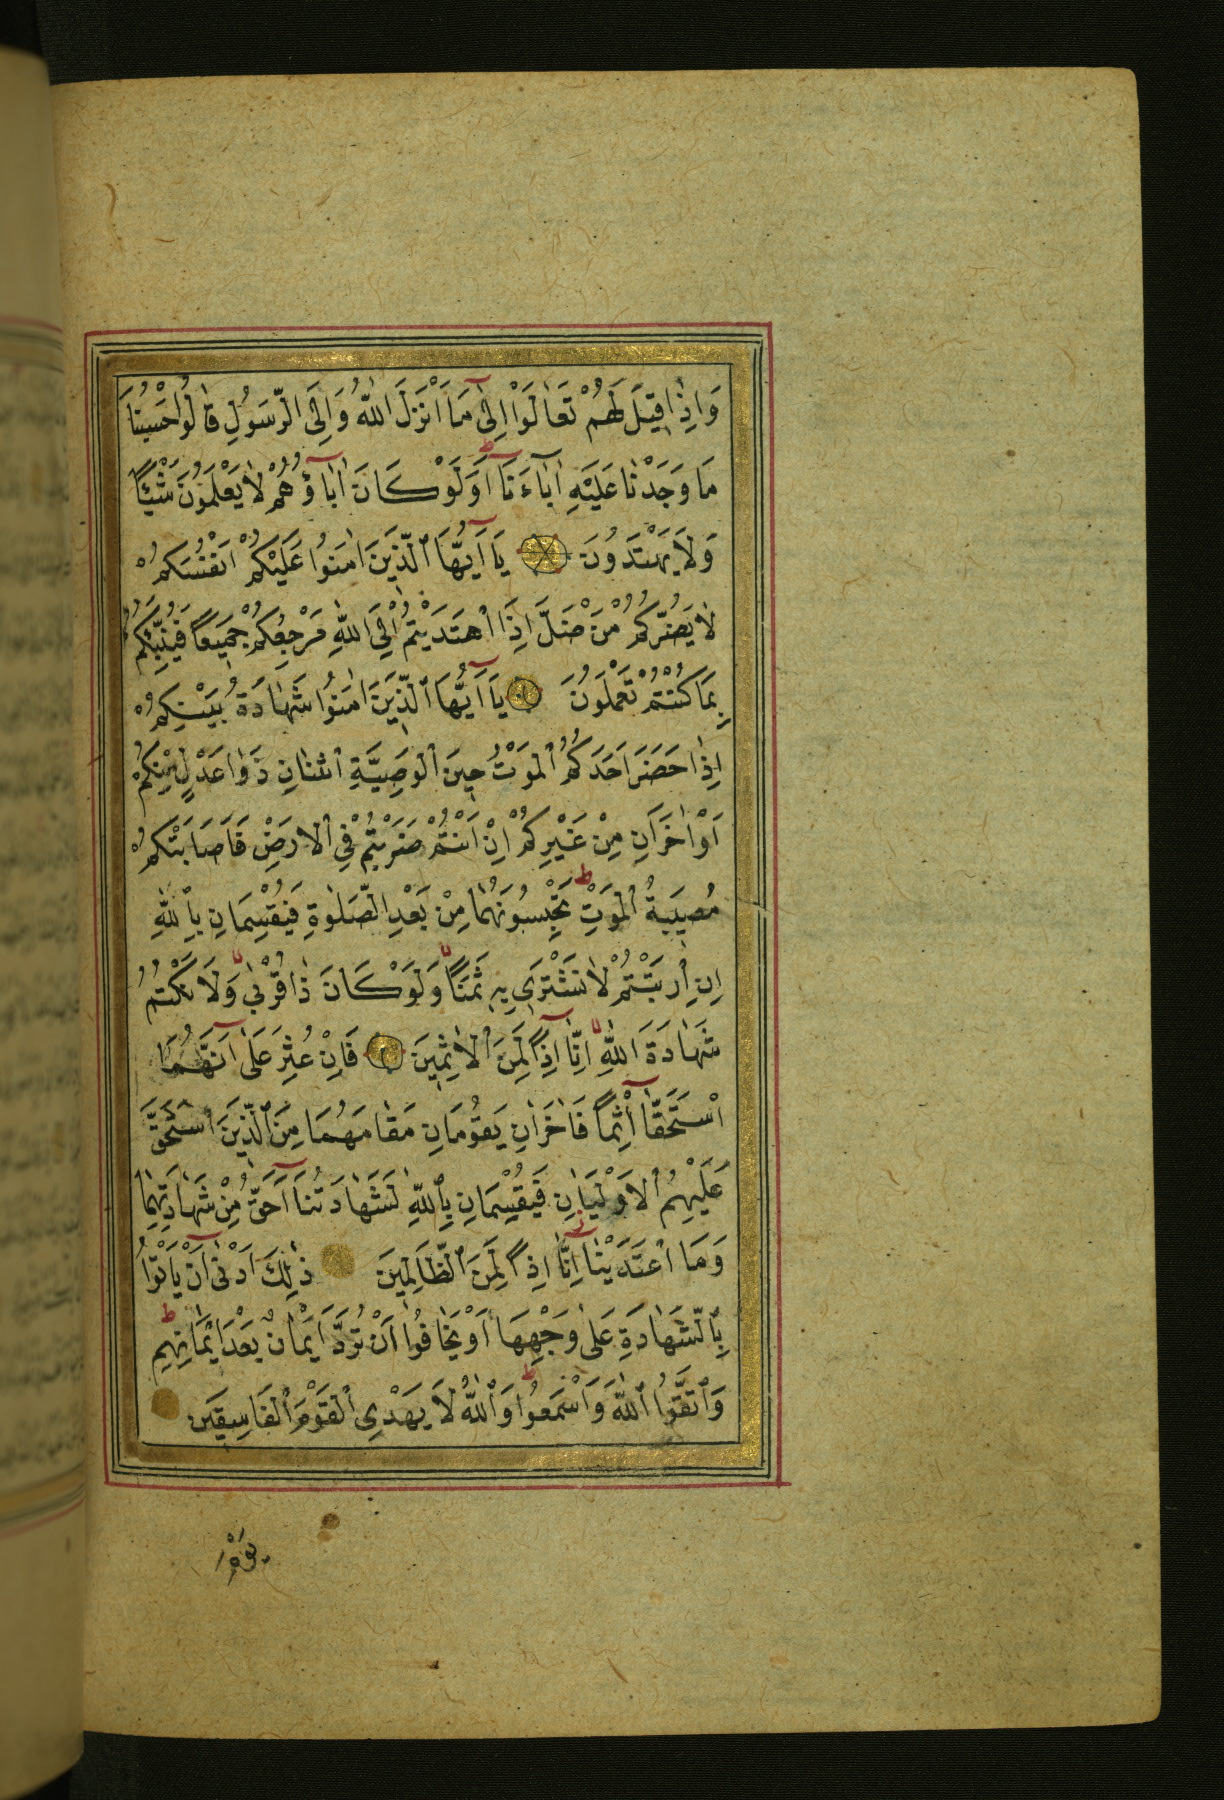 وَاِذَا قِيلَ لَهُمْ تَعَالَوْا اِلٰى مَا اَنْزَلَ اللّٰهُ وَاِلَى الرَّسُولِ قَالُوا حَسْبُنَا
مَا وَجَدْنَا عَلَيْهِ اٰبَاءَنَا اَوَلَوْ كَانَ اٰبَاؤُهُمْ لَا يَعْلَمُونَ شَيْئًا
وَلَا يَهْتَدُونَ يَا اَيُّهَا الَّذِينَ اٰمَنُوا عَلَيْكُمْ اَنْفُسَكُمْ
لَا يَضُرُّكُمْ مَنْ ضَلَّ اِذَا اهْتَدَيْتُمْ اِلَى اللّٰهِ مَرْجِعُكُمْ جَمِيعًا فَيُنَبِّئُكُمْ
بِمَا كُنْتُمْ تَعْمَلُونَ يَا اَيُّهَا الَّذِينَ اٰمَنُوا شَهَادَةُ بَيْنِكُمْ
اِذَا حَضَرَ اَحَدَكُمُ الْمَوْتُ حِينَ الْوَصِيَّةِ اثْنَانِ ذَوَا عَدْلٍ مِنْكُمْ
اَوْ اٰخَرَانِ مِنْ غَيْرِكُمْ اِنْ اَنْتُمْ ضَرَبْتُمْ فِي الْاَرْضِ فَاَصَابَتْكُمْ
مُصِيبَةُ الْمَوْتِ تَحْبِسُونَهُمَا مِنْ بَعْدِ الصَّلٰوةِ فَيُقْسِمَانِ بِاللّٰهِ
اِنِ ارْتَبْتُمْ لَا نَشْتَرِي بِهِ ثَمَنًا وَلَوْ كَانَ ذَا قُرْبٰى وَلَا نَكْتُمُ
شَهَادَةَ اللّٰهِ اِنَّا اِذًا لَمِنَ الْاٰثِمِينَ فَاِنْ عُثِرَ عَلٰى اَنَّهُمَا
اسْتَحَقَّا اِثْمًا فَاٰخَرَانِ يَقُومَانِ مَقَامَهُمَا مِنَ الَّذِينَ اسْتَحَقَّ
عَلَيْهِمُ الْاَوْلَيَانِ فَيُقْسِمَانِ بِاللّٰهِ لَشَهَادَتُنَا اَحَقُّ مِنْ شَهَادَتِهِمَا
وَمَا اعْتَدَيْنَا اِنَّا اِذًا لَمِنَ الظَّالِمِينَ ذٰلِكَ اَدْنٰى اَنْ يَاْتُوا
بِالشَّهَادَةِ عَلٰى وَجْهِهَا اَوْ يَخَافُوا اَنْ تُرَدَّ اَيْمَانٌ بَعْدَ اَيْمَانِهِمْ
وَاتَّقُوا اللّٰهَ وَاسْمَعُوا وَاللّٰهُ لَا يَهْدِي الْقَوْمَ الْفَاسِقِينَ
يَوْمَ